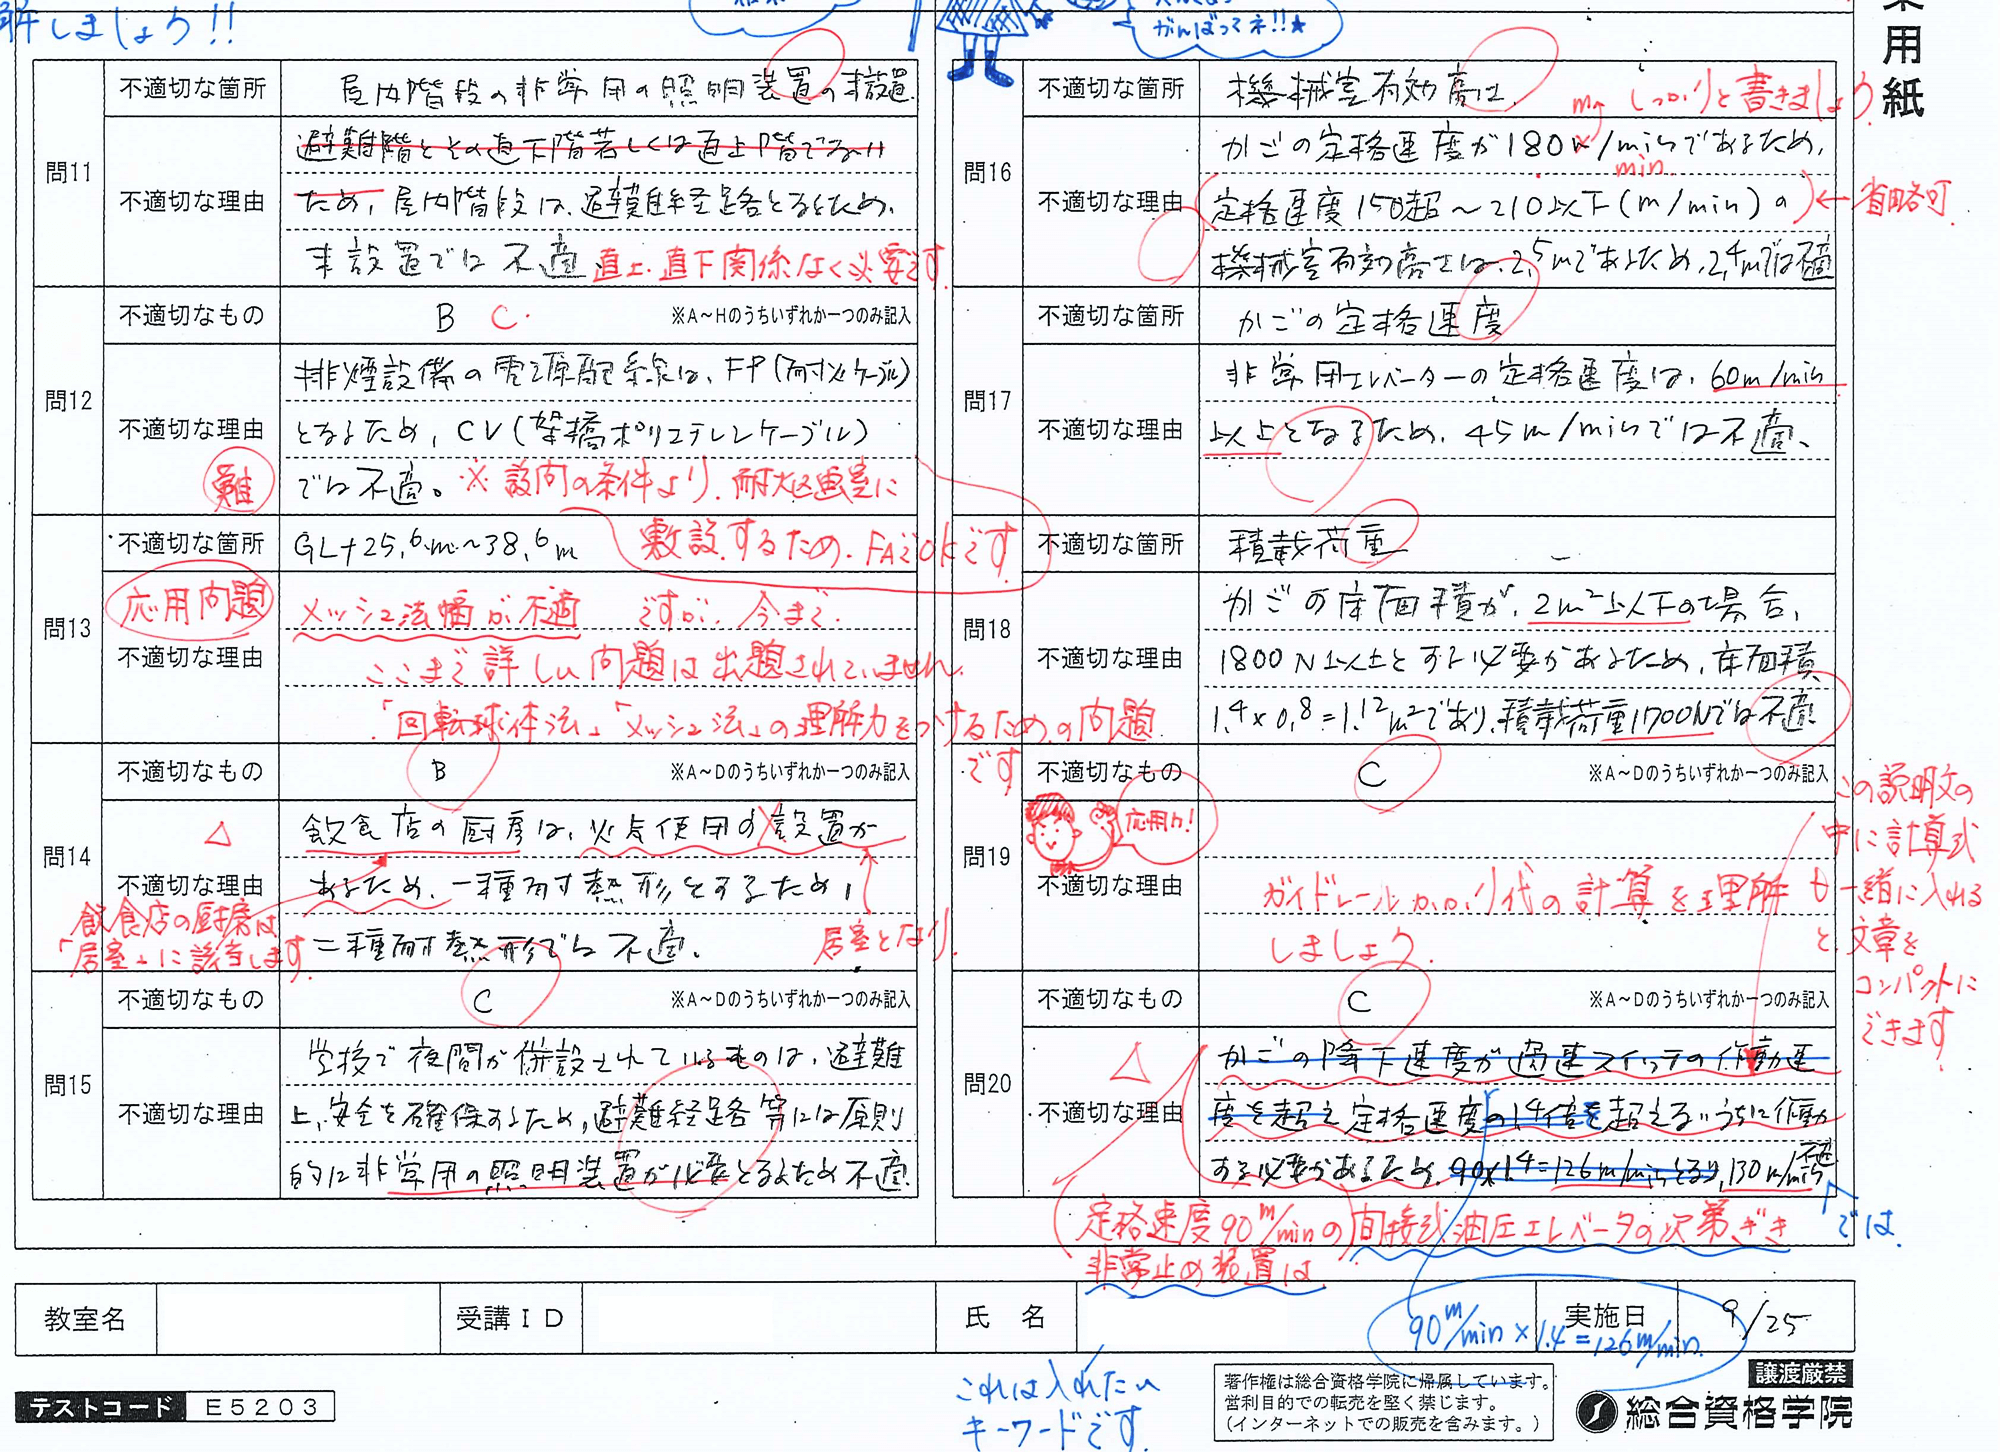 解しましょう!!
がんばってネ!!★
用紙
問11
不適切な箇所
屋内階段の非常用の照明装置の未設置
不適切な理由
避難階とその直下階若しくは直上階である
ため、屋内階段は、避難経路となるため、
未設置では不適
直上・直下関係なく必要です
問12
不適切なもの
B C
※A~Hのうちいずれか一つのみ記入
不適切な理由
排煙設備の電源配線は、FP(耐火ケーブル)
となるため、CV(架橋ポリエチレンケーブル)
では不適。
難
※設問の条件より、耐火区画室に
敷設するため、FAでOKです
問13
不適切な箇所
GL+25.6m~38.6m
応用問題
不適切な理由
メッシュ法幅が不適 ですが、今まで
ここまで詳しい問題は出題されていません。
「回転球体法」「メッシュ法」の理解力をつけるための問題
です
問14
不適切なもの
B
※A~Dのうちいずれか一つのみ記入
△
不適切な理由
飲食店の厨房は、火気使用の設置が
あるため、一種耐熱形とするため、
二種耐熱形では不適。
飲食店の厨房は
「居室」に該当します
居室となり
問15
不適切なもの
C
※A~Dのうちいずれか一つのみ記入
不適切な理由
学校で夜間が併設されているものは、避難
上、安全を確保するため、避難経路等には原則
的に非常用の照明装置が必要となるため不適
問16
不適切な箇所
機械室有効高さ
m しっかりと書きましょう
不適切な理由
かごの定格速度が180m/minであるため、
min
定格速度150超~210以下(m/min)の
←省略可
機械室有効高さは、2.5mであるため、2.4mでは不適
問17
不適切な箇所
かごの定格速度
不適切な理由
非常用エレベーターの定格速度は、60m/min
以上となるため、45m/minでは不適、
問18
不適切な箇所
積載荷重
不適切な理由
かごの床面積が、2m²以下の場合、
1800N以上とする必要があるため、床面積
1.4×0.8=1.12m²であり、積載荷重1700Nでは不適
問19
不適切なもの
C
※A~Dのうちいずれか一つのみ記入
応用力!
不適切な理由
ガイドレールかかり代の計算を理解
しましょう。
この説明文の
中に計算式
も一緒に入れる
と、文章を
コンパクトに
できます
問20
不適切なもの
C
※A~Dのうちいずれか一つのみ記入
△
不適切な理由
かごの降下速度が過速スイッチの作動速
度を超え定格速度の1.4倍を超えないうちに作動
する必要があるため、90×1.4=126m/minとなり、130m/min不適
では
定格速度90m/minの間接式油圧エレベータの次第ぎき
非常止め装置は
教室名
受講ID
氏 名
実施日
9/25
90m/min×1.4=126m/min
これは入れたい
キーワードです
テストコード E5203
著作権は総合資格学院に帰属しています。
営利目的での転売を堅く禁じます。
(インターネットでの販売を含みます。)
譲渡厳禁
総合資格学院